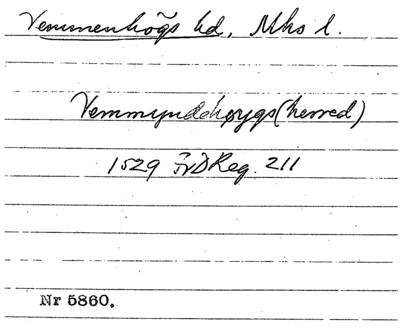 Vemmenhögs hd, Mhs l.
Vemmynddehøygs (herred)
1529 FrDReg. 211
Nr 5860.